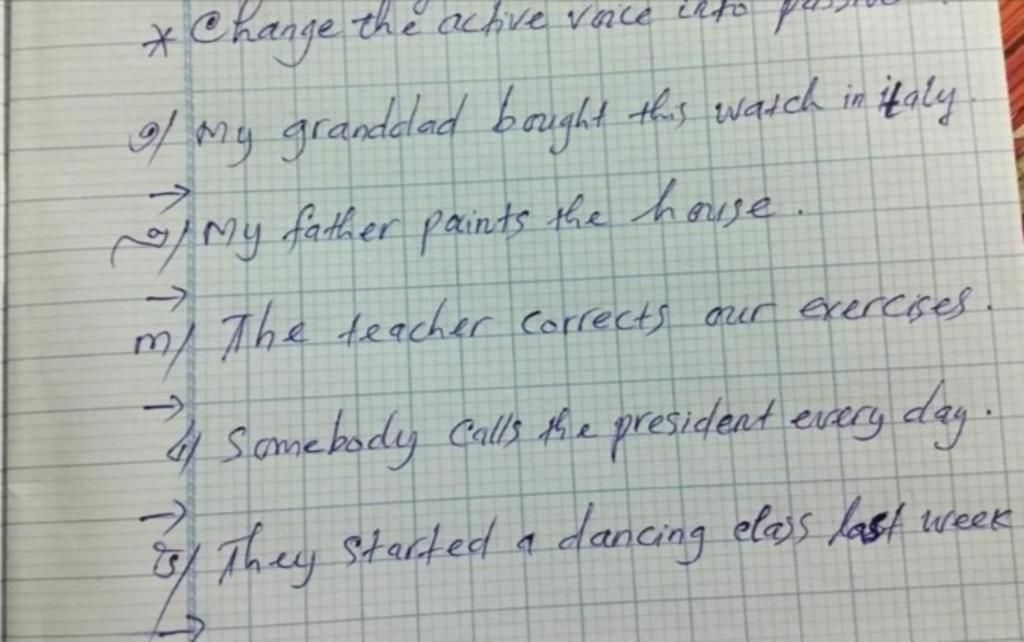 * Change the active voice into passive
១/ My granddad bought this watch in italy.
→
២/ My father paints the house.
→
៣/ The teacher corrects our exercises.
→
៤/ Somebody calls the president every day.
→
៥/ They started a dancing class last week
→